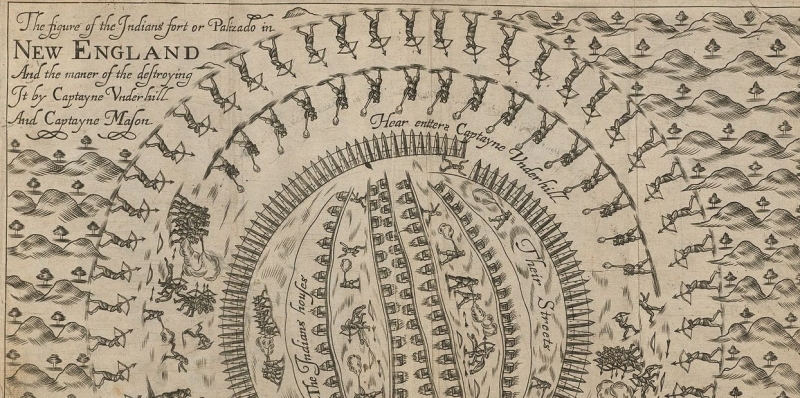 The figure of the Indians fort or Palizado in
NEW ENGLAND
And the maner of the destroying
It by Captayne Vnderhill
And Captayne Mason
Hear enters Captayne Vnderhill
Their Streets
The Indians houses